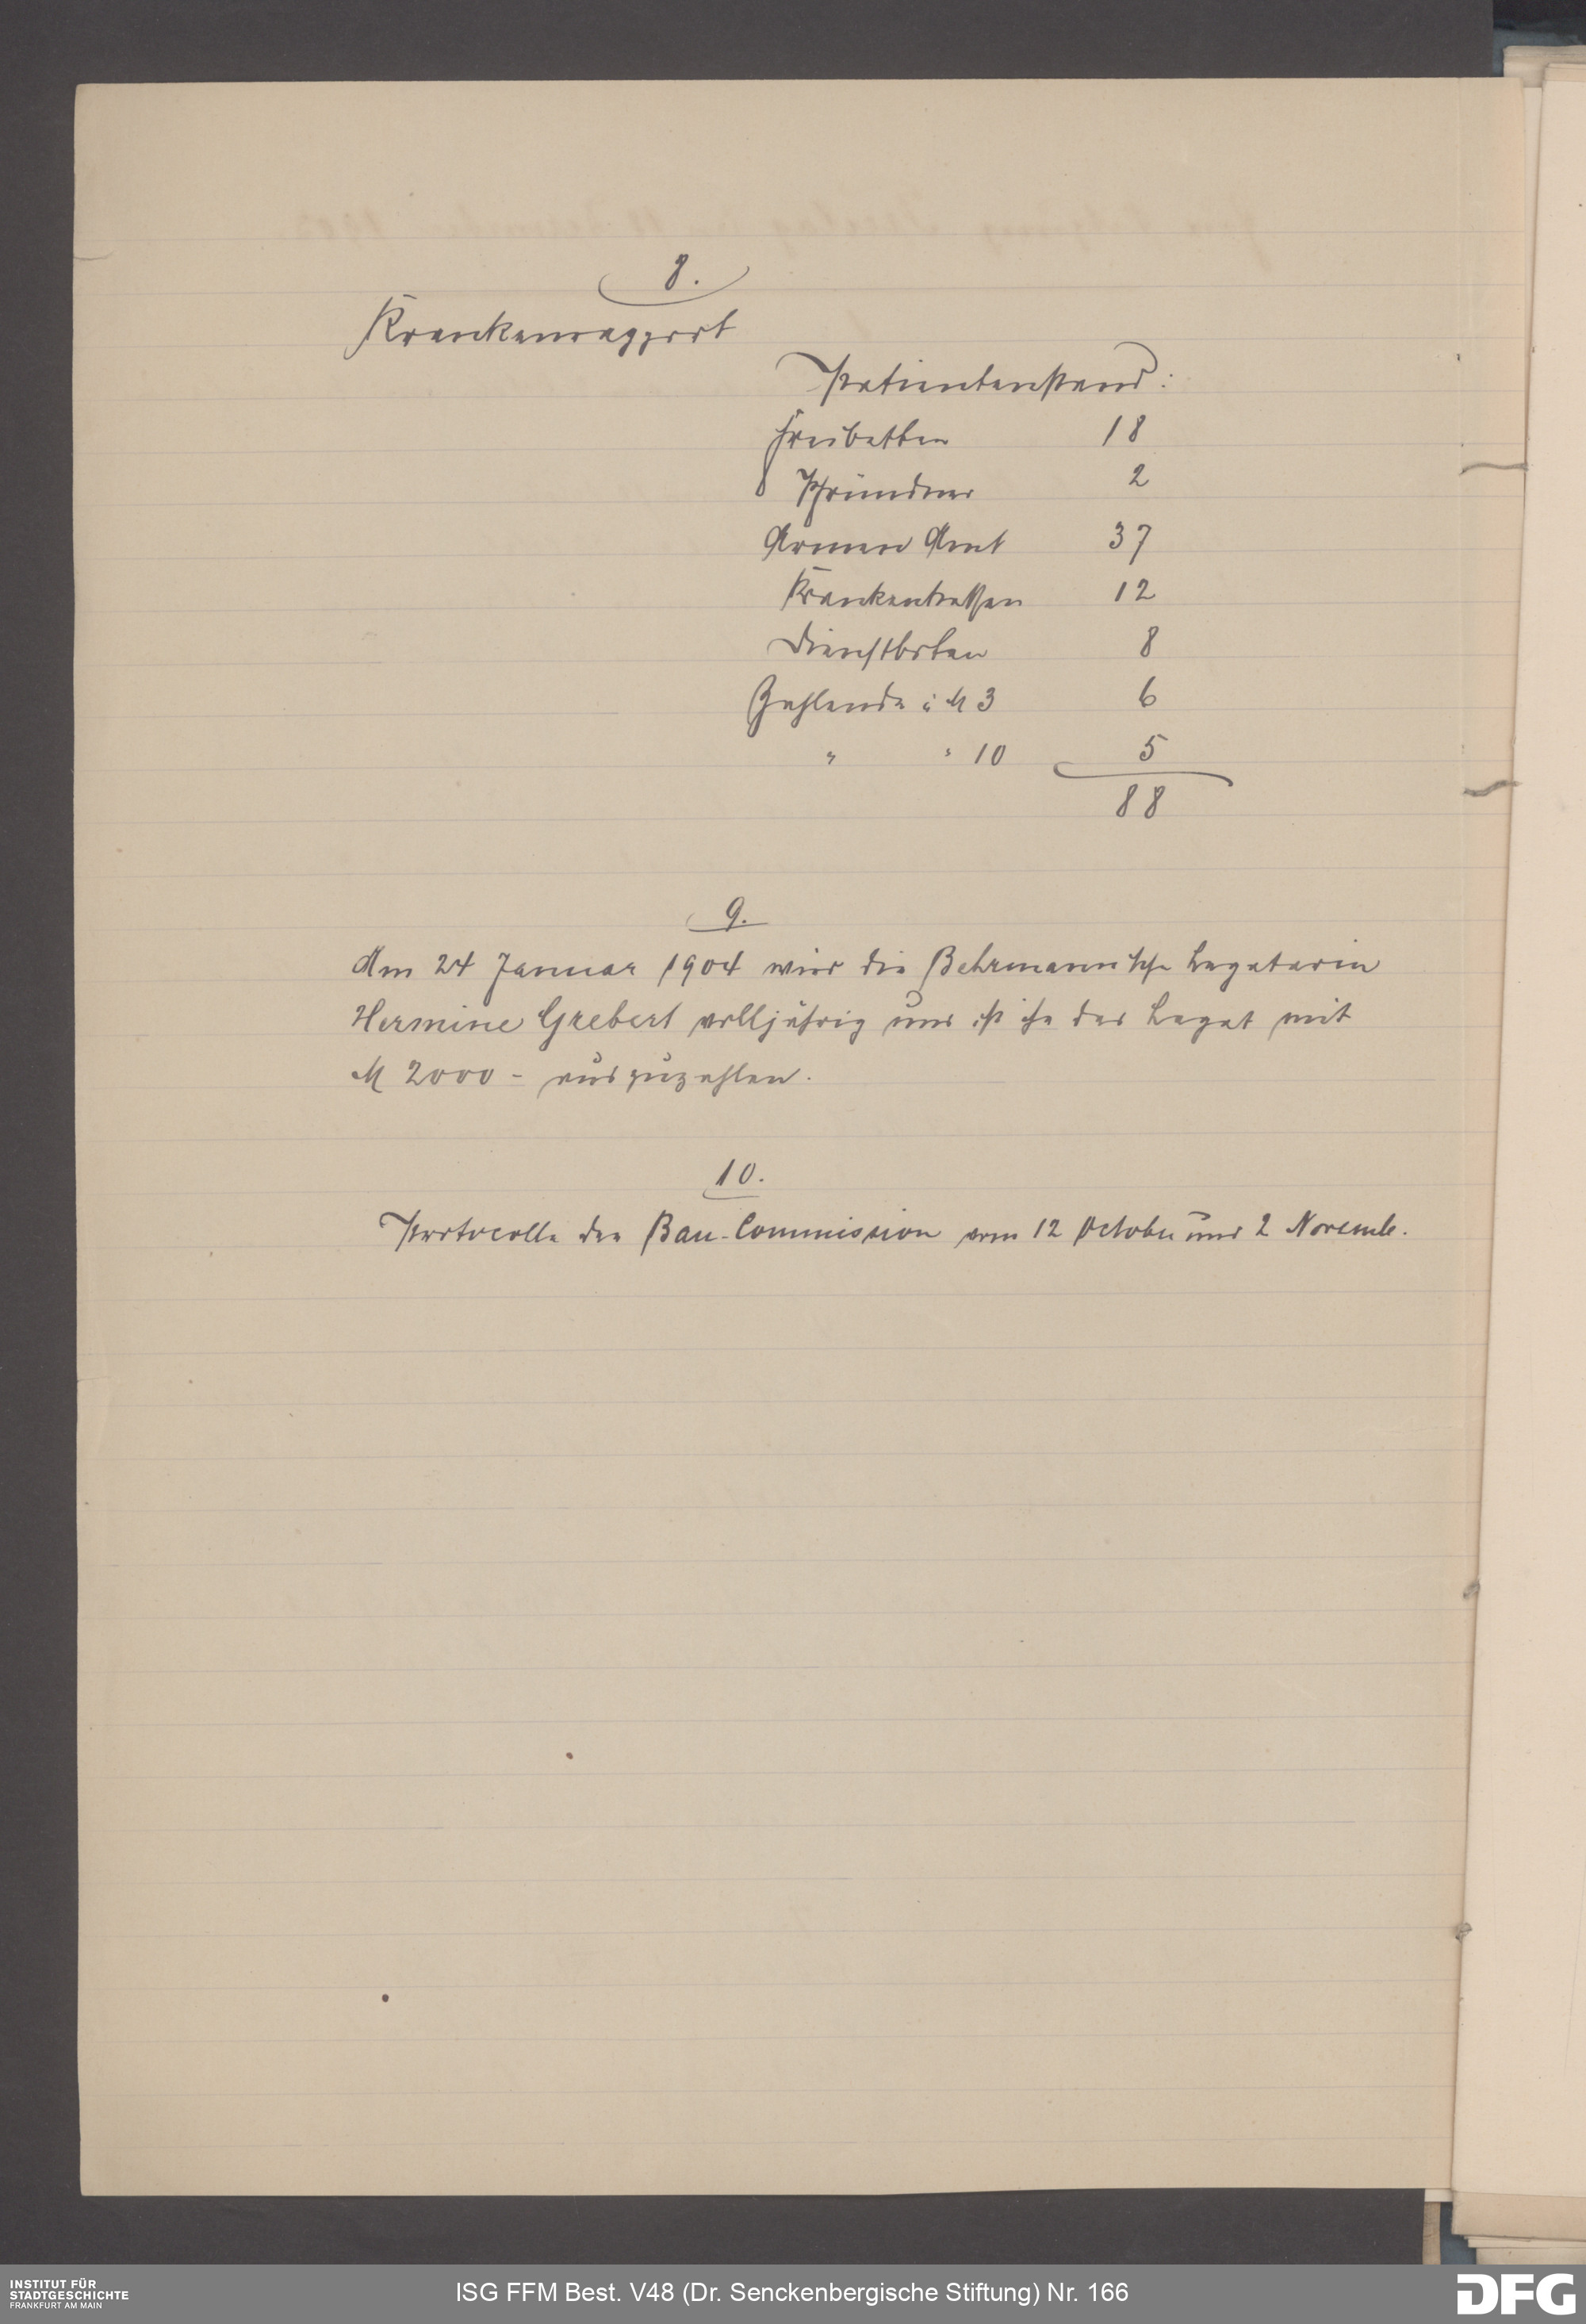 8.
Krankenrapport
Patientenstand:
Freibetten 18
Pfründner 2
Armen Amt 37
Krankenkassen 12
Dienstboten 8
Zahlende à M 3 6
" " 10 5
88
9.
Am 24 Januar 1904 wird die Behrmann'sche Legatarin
Hermine Grebert volljährig und ist ihr das Legat mit
M 2000 - auszuzahlen.
10.
Protocolle der Bau-Commission vom 12 October und 2 Novemb.
INSTITUT FÜR
STADTGESCHICHTE
FRANKFURT AM MAIN
ISG FFM Best. V48 (Dr. Senckenbergische Stiftung) Nr. 166
DFG